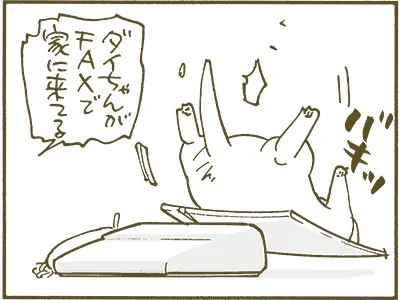 ダイちゃんが
FAXで
家に来てる
バキッ